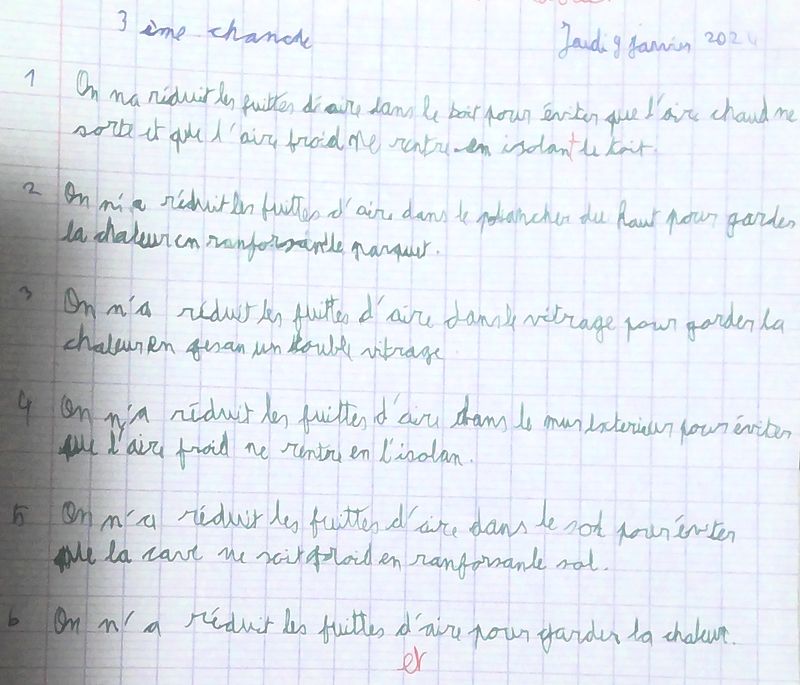 3 ème chance
Jeudi 9 janvier 202
1 On na réduit les fuittes d'aire dans le toit pour éviter que l'aire chaud ne
sorte et que l'aire froid ne rentre en isolant le toit.
2 On n'a réduit les fuittes d'aire dans le plancher du haut pour garder
la chaleur en ranforsant le parquet.
3 On n'a réduit les fuittes d'aire dans le vitrage pour garder la
chaleur en fesan un double vitrage
4 On n'a réduit les fuittes d'aire dans le mur exterieur pour éviter
que l'aire froid ne rentre en l'isolan.
5 On n'a réduit les fuittes d'aire dans le sol pour éviter
que la cave ne soit froid en ranforsan le sol.
6 On n'a réduit les fuittes d'aire pour garder la chaleur.
er